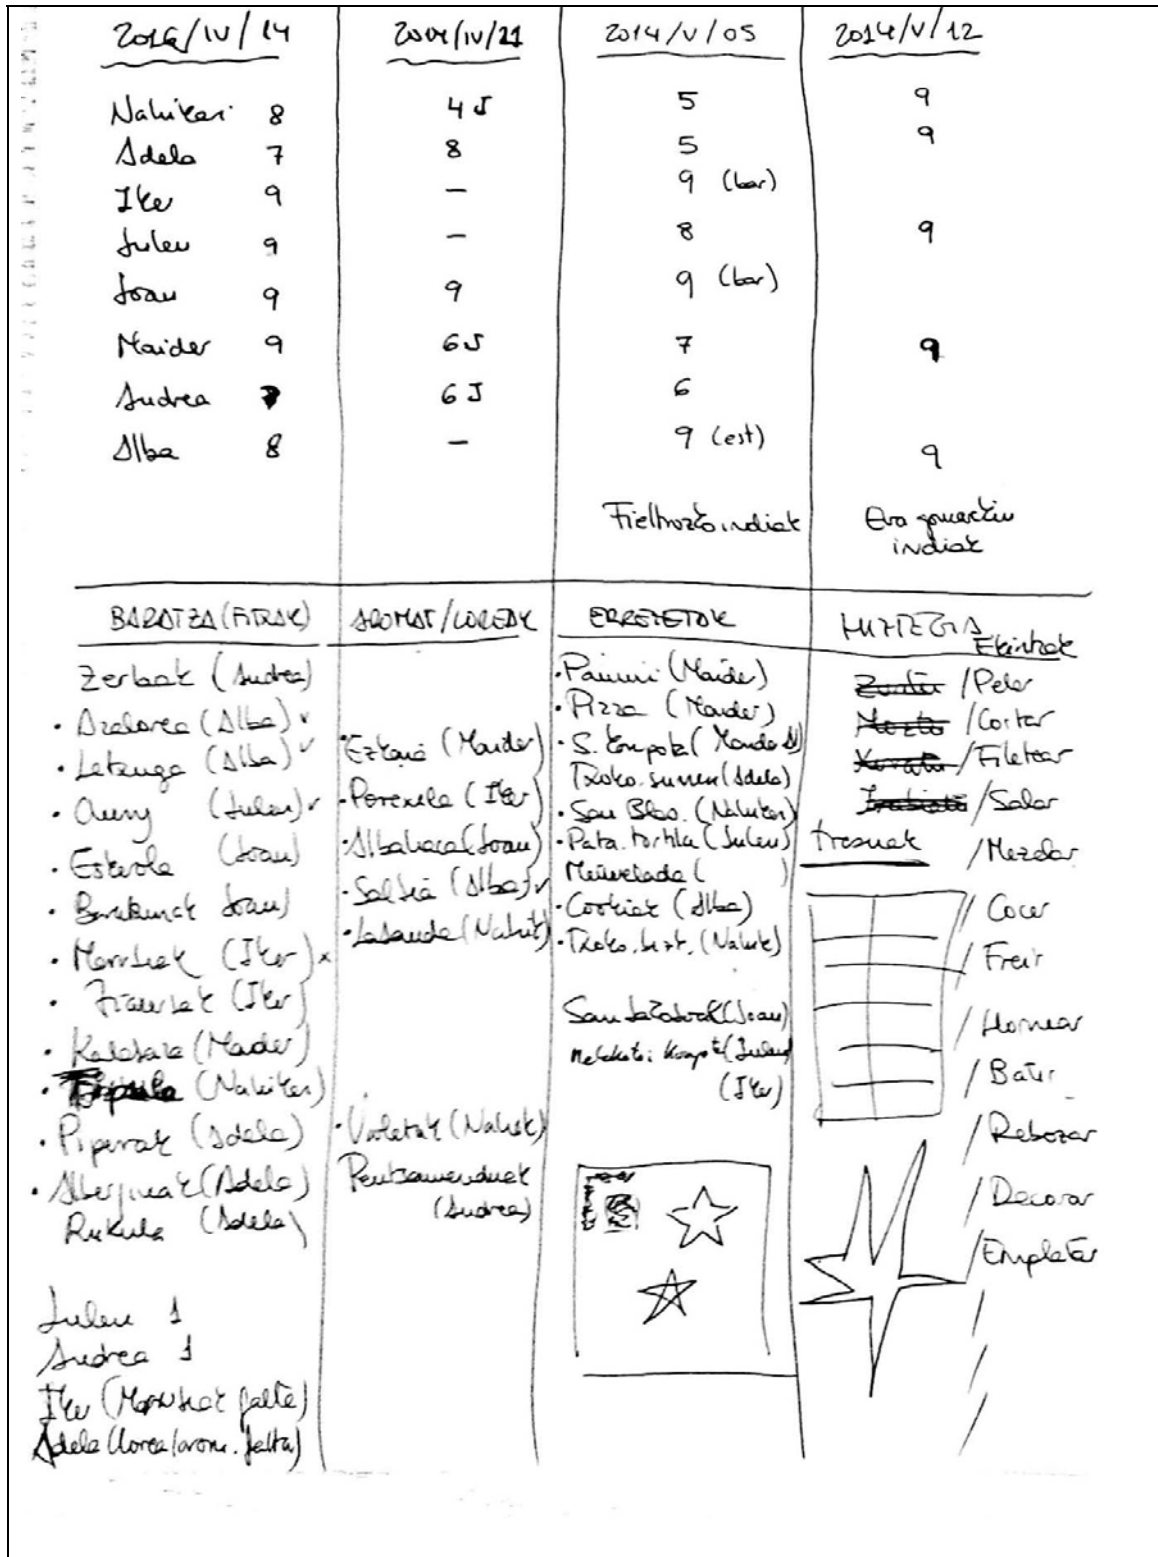 2014/IV/14 2014/IV/21 2014/V/05 2014/V/12
Nahikari 8 4 J 5 9
Adela 7 8 5 9
Iker 9 – 9 (bar)
Julen 9 – 8 9
Joan 9 9 9 (bar)
Maider 9 6 J 7 9
Andrea 7 6 J 6
Alba 8 – 9 (est) 9
Fieltrozko indiak
Eva gomarekin
indiak
BARATZA (FITXAK)
Zerbak (Andrea)
· Azalorea (Alba) v
· Letxuga (Alba) v
· (Julen) v
· Eskarola (Joan)
· Barakunak Joan)
· Marrubiak (Iker) x
· (Iker)
· Kalabaza (Maider)
· Tipula (Nahikari)
· Piperrak (Adela)
· Alberjinak (Adela)
Rukula (Adela)
Julen 1
Andrea 1
Iker (Marrubiak falta)
Adela (lorea/arom. falta)
AROMAT/LOREAK
· Ezkaia (Maider)
· Porexila (Iker)
· Albahaca (Joan)
· Salbia (Alba) v
· Labanda (Nahik)
· Violetak (Nahik)
Pentsamenduak
(Andrea)
ERREZETAK
· Panini (Maider)
· Pizza (Maider)
· S. konpota (
Txoko. (Adela)
· San Blas. (Nahikari)
· Pata. tortilla (Julen)
Mermelada ( )
· Cookiak (Alba)
· Txoko. bizk. (Nahik)
(Joan)
Melokotoi konpota (Julen)
(Iker)
HIZTEGIA
Ekintzak
/Pelar
/Cortar
/Filetear
/Salar
tresnak /Mezclar
/Cocer
/Freir
/Hornear
/Batir
/Rebozar
/Decorar
/Emplatar